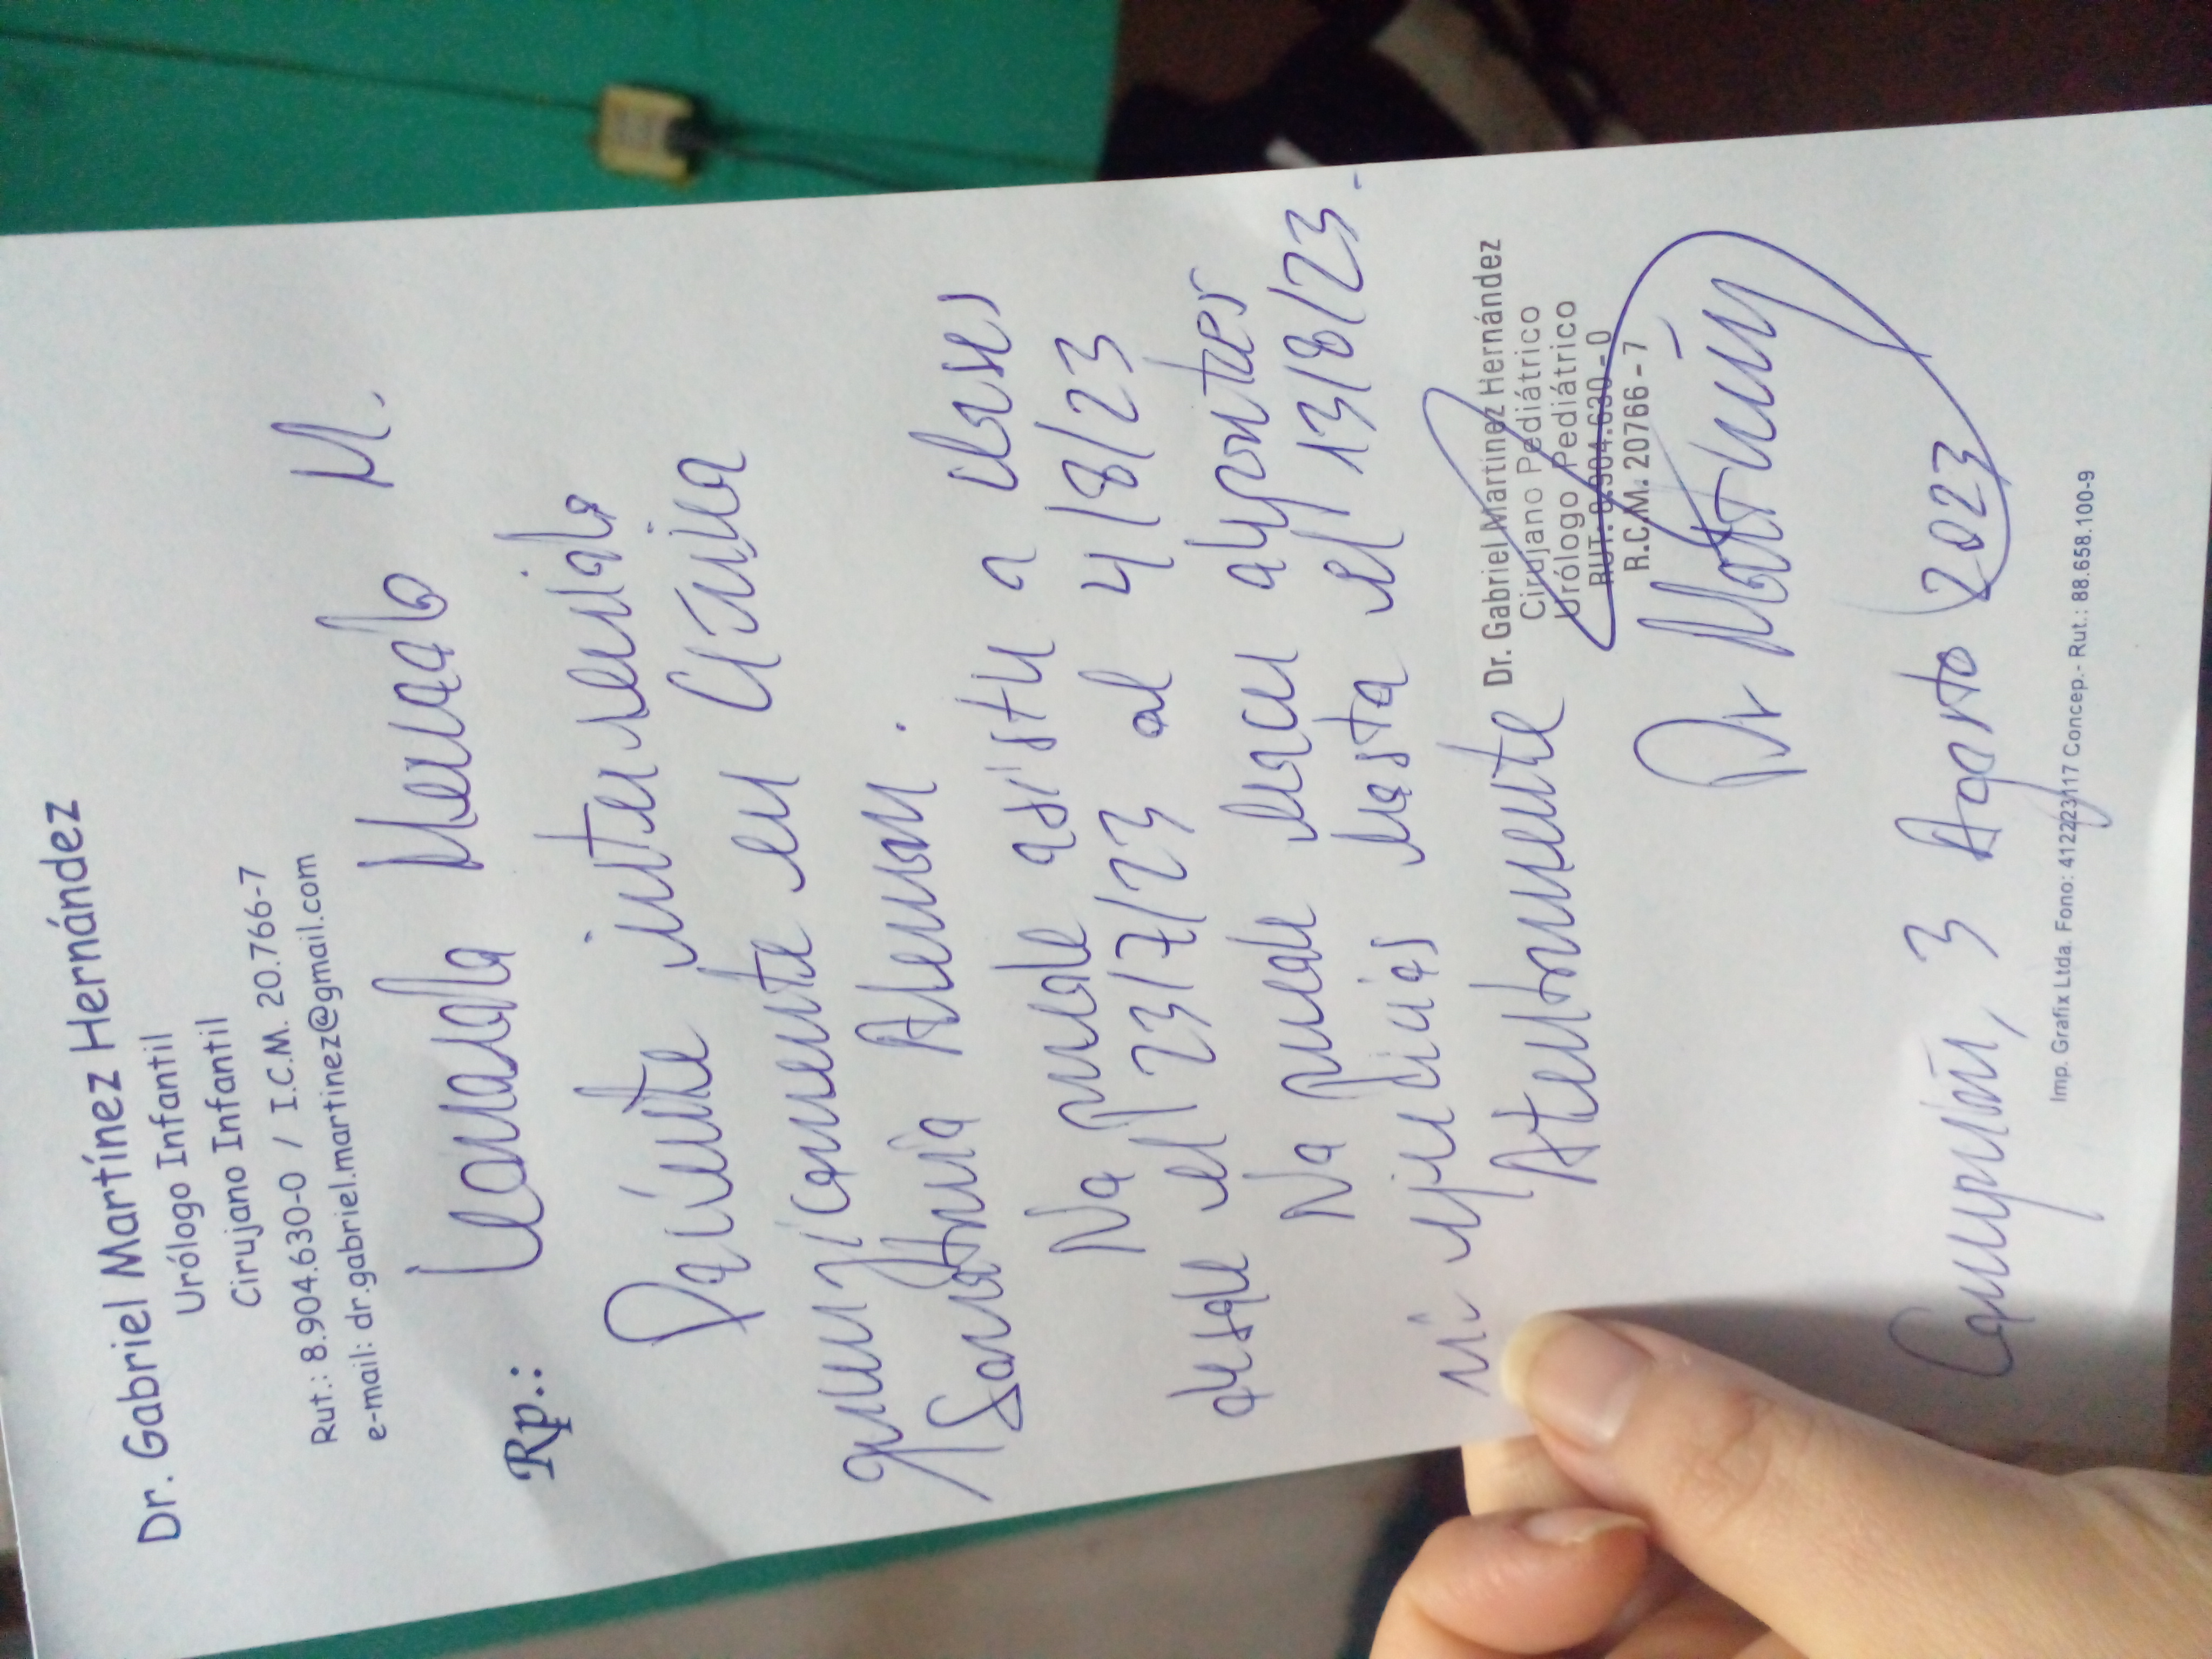 Dr. Gabriel Martínez Hernández
Urólogo Infantil
Cirujano Infantil
Rut.: 8.904.630-0 / I.C.M. 20.766-7
e-mail: dr.gabriel.martinez@gmail.com
Rp.:
Mercado M.
Paciente intervenido
quirurgicamente en Clinica
Sanatorio Aleman.
No puede asistir a clases
desde el 23/7/23 al 4/8/23
No puede hacer deportes
ni ejercicios hasta el 13/8/23.-
Atentamente
Dr. Gabriel Martinez Hernández
Cirujano Pediátrico
Urólogo Pediátrico
RUT: 8.904.630-0
R.C.M. 20766-7
Dr Martinez
Concepción, 3 Agosto 2023
Imp. Grafix Ltda. Fono: 412223117 Concep.- Rut.: 88.658.100-9